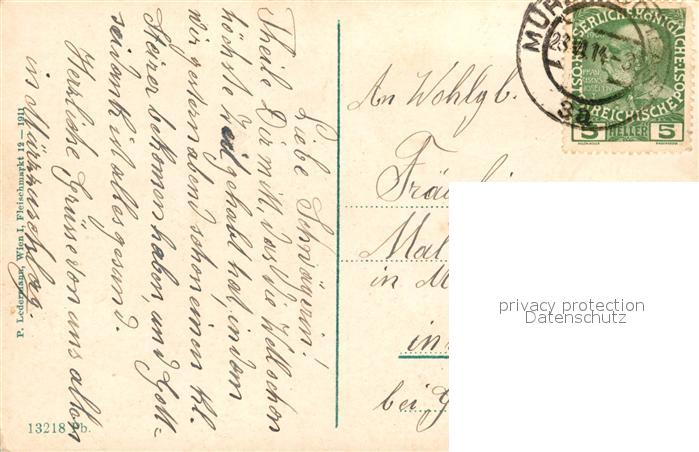 Liebe Schwägerin!
Theile Dir mit, dass die
höchste Zeit gehabt hat, indem
wir gestern abend schon einen kl.
Steirer bekommen haben, und Gott-
seidank ist alles gesund.
Herzliche Grüsse von uns allen
in Mürzzuschlag.
P. Ledermann, Wien I, Fleischmarkt 12—1911
13218 Pb.
An Wohlgb.
Fräu
Mal
in M
in
bei G
MÜR
23 VI 14
3a
KAISERLICHE KÖNIGLICHE
REICHISCHE
5 HELLER 5
privacy protection
Datenschutz